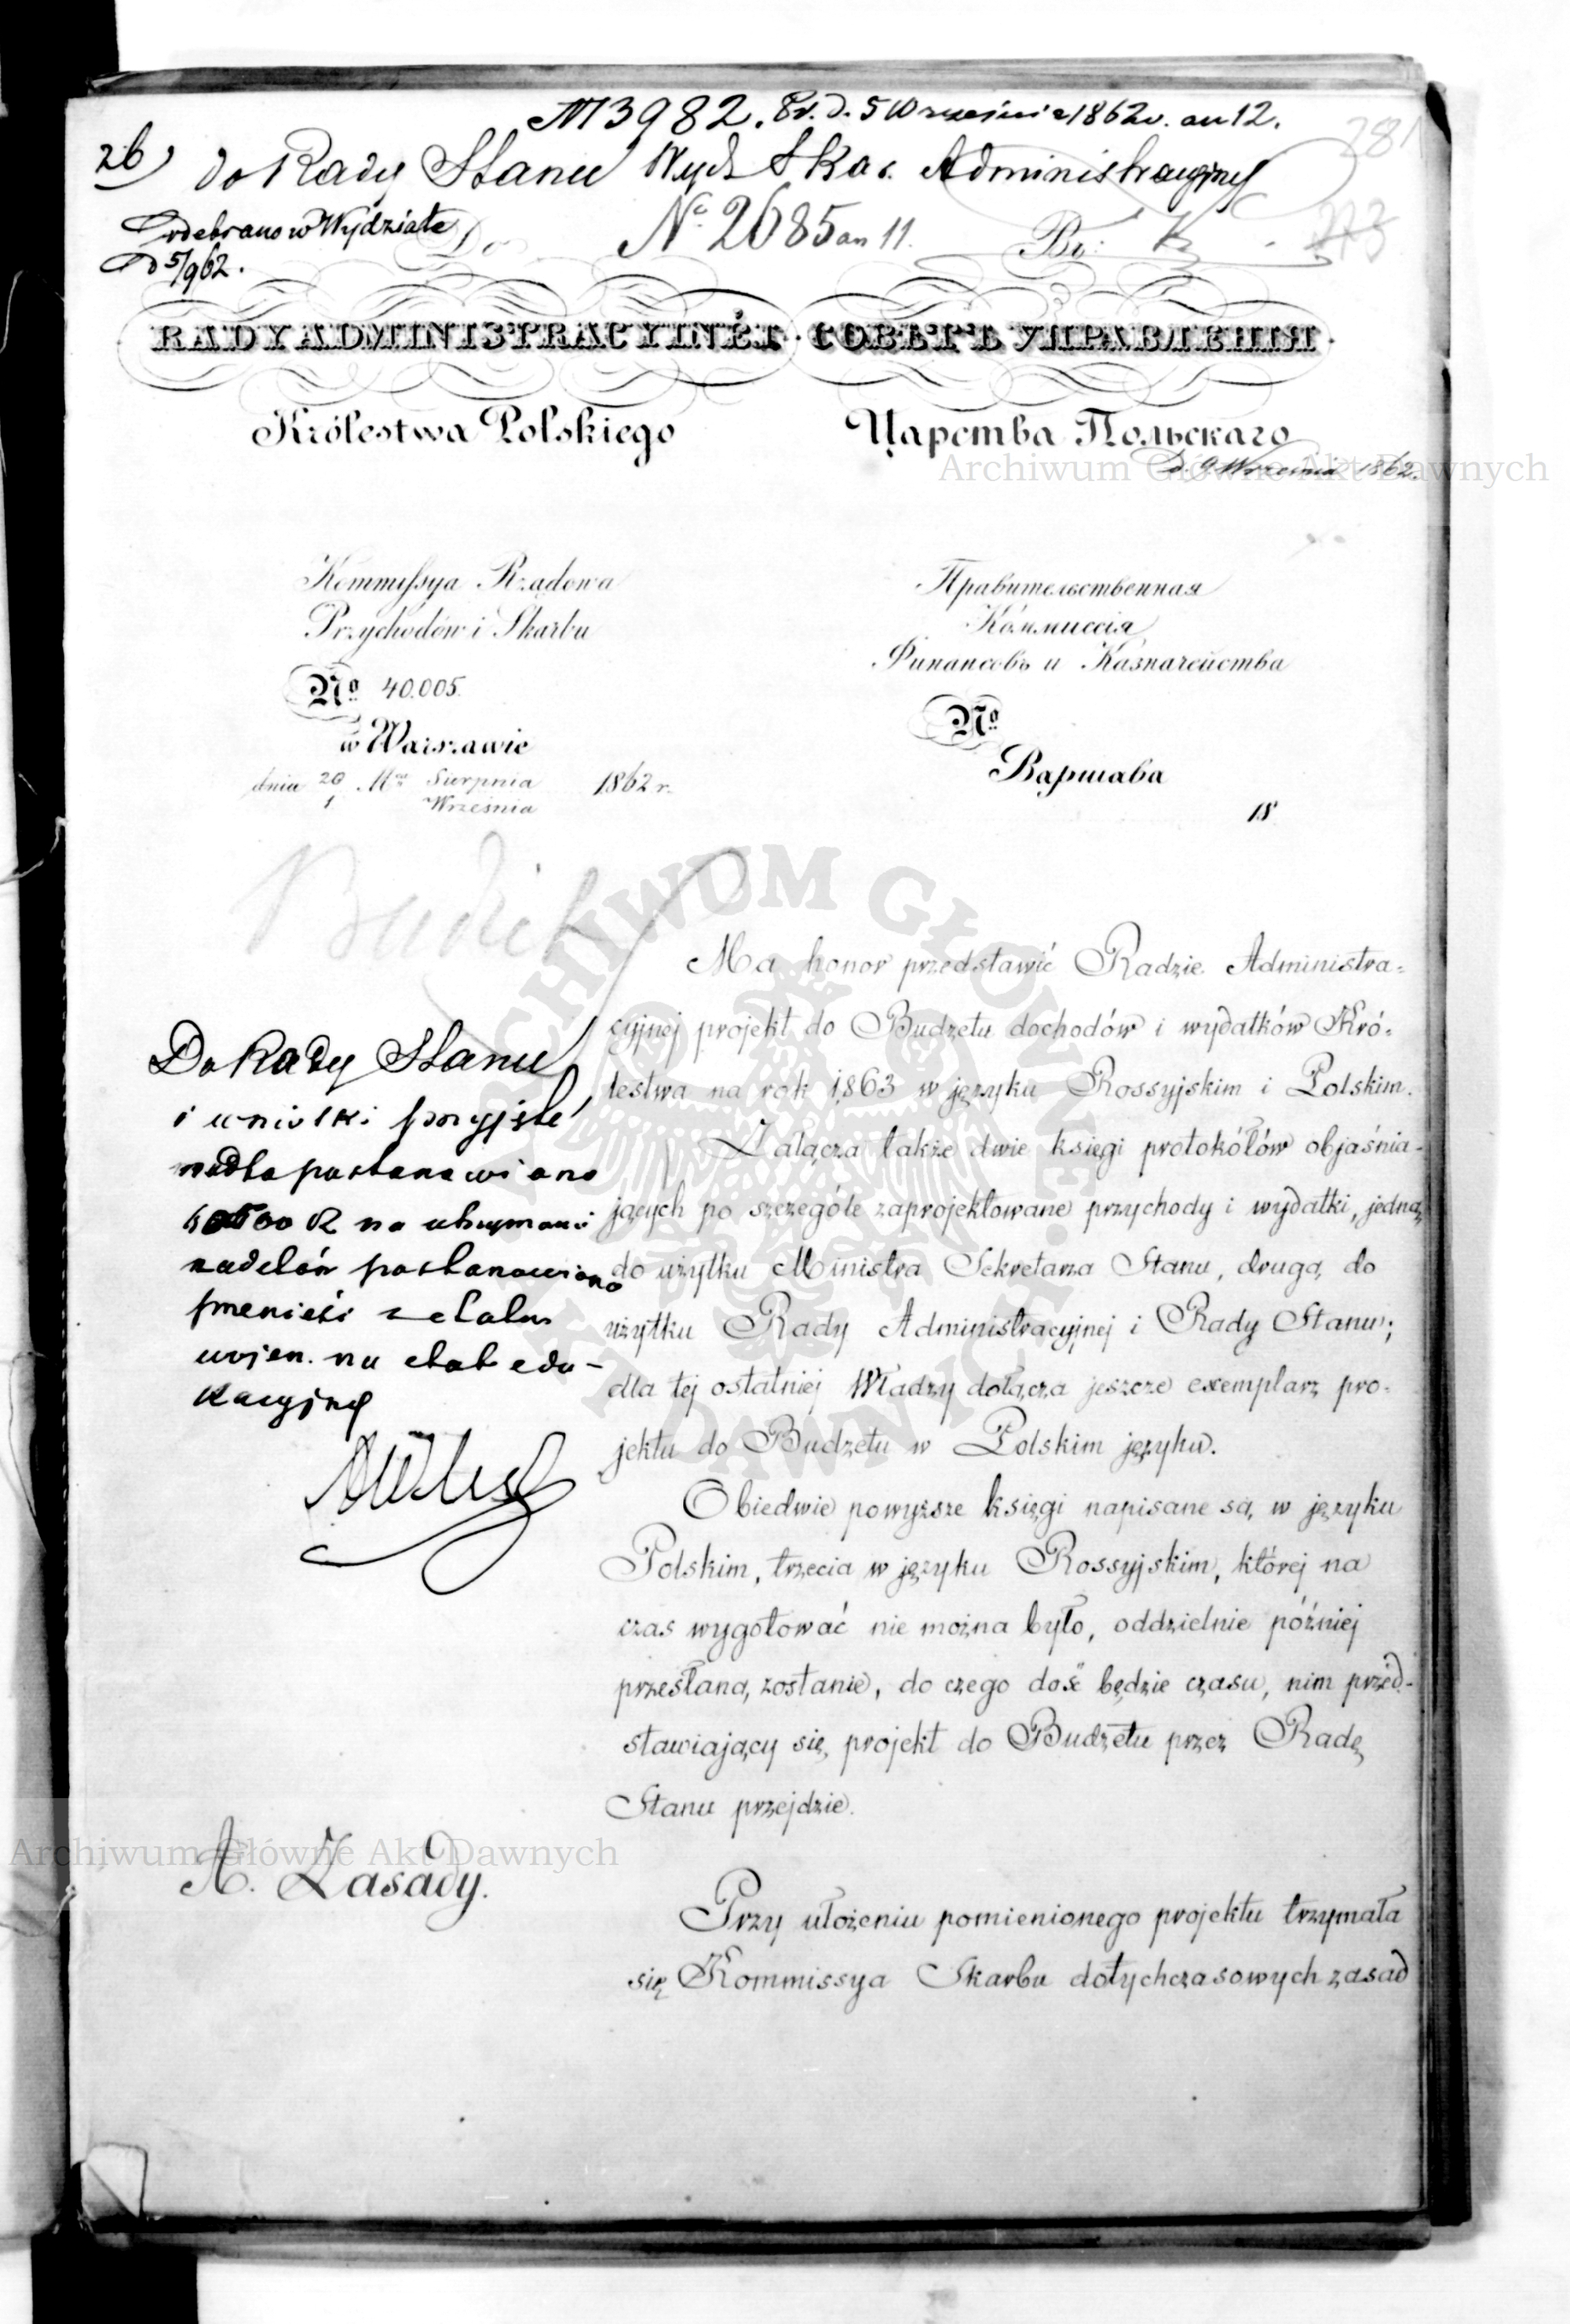 N 3982. Pr. d. 5 Września 1862 r. an 12.
281
26) do Rady Stanu Wydz Skar. Administracyjny
Odebrano w Wydziale
D 5/9 62.
Do
No 2685 an 11.
273
RADY ADMINISTRACYINÉY · СОВѢТЪ УПРАВЛЕНІЯ
Królestwa Polskiego
Царства Польскаго
D. 9 Września 1862.
Kommissya Rządowa
Przychodów i Skarbu
No 40.005.
w Warszawie
dnia 20 Mca Sierpnia 1862 r.
1 Września
Правительственная
Коммиссія
Финансовъ и Казначейства
No
Варшава
18
Budżet
Do Rady Stanu
i wnioski przyjść
postanowiono
R na utrzymanie
postanowiono
przenieść z etatu
wojen. na etat edu-
kacyjny
Ma honor przedstawić Radzie Administra-
cyjnej projekt do Budżetu dochodów i wydatków Kró-
lestwa na rok 1863 w języku Rossyjskim i Polskim.
Załącza także dwie księgi protokółów objaśnia-
jących po szczególe zaprojektowane przychody i wydatki, jedną
do użytku Ministra Sekretarza Stanu, drugą do
użytku Rady Administracyjnej i Rady Stanu;
dla tej ostatniej Władzy dołącza jeszcze exemplarz pro-
jektu do Budżetu w Polskim języku.
Obiedwie powyższe księgi napisane są w języku
Polskim, trzecia w języku Rossyjskim, której na
czas wygotować nie można było, oddzielnie później
przesłaną zostanie, do czego dość będzie czasu, nim przed-
stawiający się projekt do Budżetu przez Radę
Stanu przejdzie.
A. Zasady.
Przy ułożeniu pomienionego projektu trzymała
się Kommissya Skarbu dotychczasowych zasad
Archiwum Główne Akt Dawnych
Archiwum Główne Akt Dawnych
ARCHIWUM GŁÓWNE AKT DAWNYCH